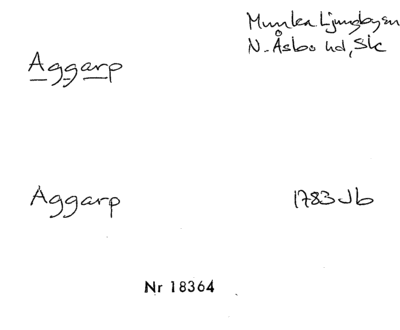 Munka Ljungbysn
N. Åsbo hd, Sk
Aggarp
Aggarp
1783 Jb
Nr 18364